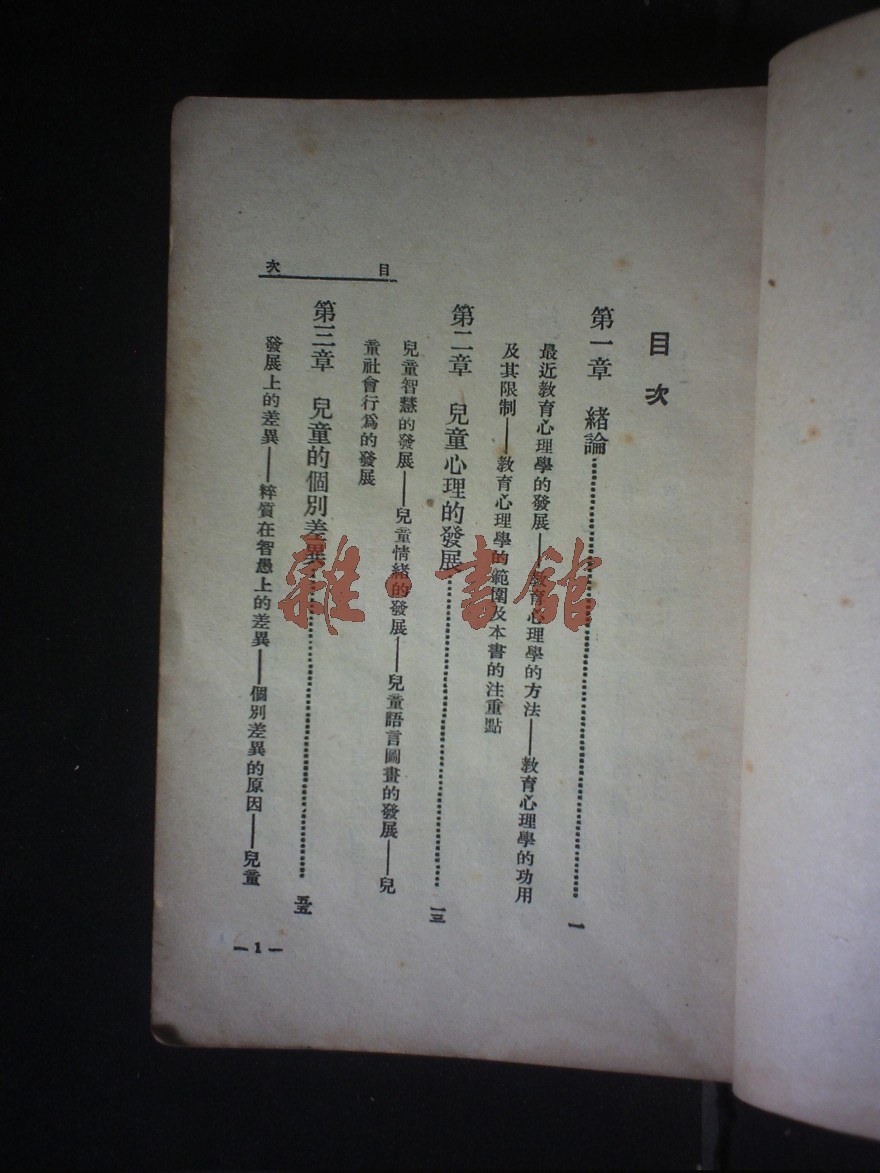 目次
目次
第一章 緒論……一
最近教育心理學的發展——教育心理學的方法——教育心理學的功用
及其限制——教育心理學的範圍及本書的注重點
第二章 兒童心理的發展……一三
兒童智慧的發展——兒童情緒的發展——兒童語言圖畫的發展——兒
童社會行爲的發展
第三章 兒童的個別差異……五五
發展上的差異——粹質在智愚上的差異——個別差異的原因——兒童
—1—
雜·書館